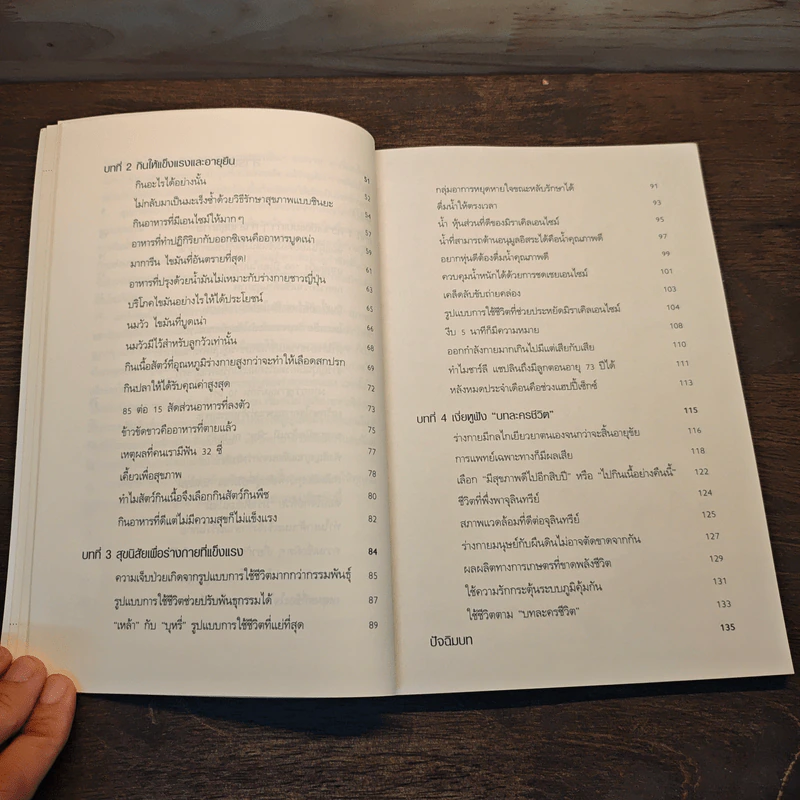 บทที่ 2 กินให้แข็งแรงและอายุยืน 51
กินอะไรได้อย่างนั้น 52
ไม่กลับมาเป็นมะเร็งซ้ำด้วยวิธีรักษาสุขภาพแบบชินยะ 54
กินอาหารที่มีเอนไซม์ให้มาก ๆ 56
อาหารที่ทำปฏิกิริยากับออกซิเจนคืออาหารบูดเน่า 57
มาการีน ไขมันที่อันตรายที่สุด! 59
อาหารที่ปรุงด้วยน้ำมันไม่เหมาะกับร่างกายชาวญี่ปุ่น 61
บริโภคไขมันอย่างไรให้ได้ประโยชน์ 63
นมวัว ไขมันที่บูดเน่า 65
นมวัวมีไว้สำหรับลูกวัวเท่านั้น 66
กินเนื้อสัตว์ที่อุณหภูมิร่างกายสูงกว่าจะทำให้เลือดสกปรก 68
กินปลาให้ได้รับคุณค่าสูงสุด 69
85 ต่อ 15 สัดส่วนอาหารที่ลงตัว 72
ข้าวขัดขาวคืออาหารที่ตายแล้ว 73
เหตุผลที่คนเรามีฟัน 32 ซี่ 75
เคี้ยวเพื่อสุขภาพ 78
ทำไมสัตว์กินเนื้อจึงเลือกกินสัตว์กินพืช 80
กินอาหารที่ดีแต่ไม่มีความสุขก็ไม่แข็งแรง 82
บทที่ 3 สุขนิสัยเพื่อร่างกายที่แข็งแรง 84
ความเจ็บป่วยเกิดจากรูปแบบการใช้ชีวิตมากกว่ากรรมพันธุ์ 85
รูปแบบการใช้ชีวิตช่วยปรับพันธุกรรมได้ 87
"เหล้า" กับ "บุหรี่" รูปแบบการใช้ชีวิตที่แย่ที่สุด 89
กลุ่มอาการหยุดหายใจขณะหลับรักษาได้ 91
ดื่มน้ำให้ตรงเวลา 93
น้ำ หุ้นส่วนที่ดีของมิราเคิลเอนไซม์ 95
น้ำที่สามารถต้านอนุมูลอิสระได้คือน้ำคุณภาพดี 97
อยากหุ่นดีต้องดื่มน้ำคุณภาพดี 99
ควบคุมน้ำหนักได้ด้วยการชดเชยเอนไซม์ 101
เคล็ดลับขับถ่ายคล่อง 103
รูปแบบการใช้ชีวิตที่ช่วยประหยัดมิราเคิลเอนไซม์ 104
งีบ 5 นาทีก็มีความหมาย 108
ออกกำลังกายมากเกินไปมีแต่เสียกับเสีย 110
ทำไมชาร์ลี แชปลินถึงมีลูกตอนอายุ 73 ปีได้ 111
หลังหมดประจำเดือนคือช่วงแฮปปี้เซ็กซ์ 113
บทที่ 4 เงี่ยหูฟัง "บทละครชีวิต" 115
ร่างกายมีกลไกเยียวยาตนเองจนกว่าจะสิ้นอายุขัย 116
การแพทย์เฉพาะทางก็มีผลเสีย 118
เลือก "มีสุขภาพดีไปอีกสิบปี" หรือ "ไปกินเนื้อย่างคืนนี้" 122
ชีวิตที่พึ่งพาจุลินทรีย์ 124
สภาพแวดล้อมที่ดีต่อจุลินทรีย์ 125
ร่างกายมนุษย์กับผืนดินไม่อาจตัดขาดจากกัน 127
ผลผลิตทางการเกษตรที่ขาดพลังชีวิต 129
ใช้ความรักกระตุ้นระบบภูมิคุ้มกัน 131
ใช้ชีวิตตาม "บทละครชีวิต" 133
ปัจฉิมบท 135